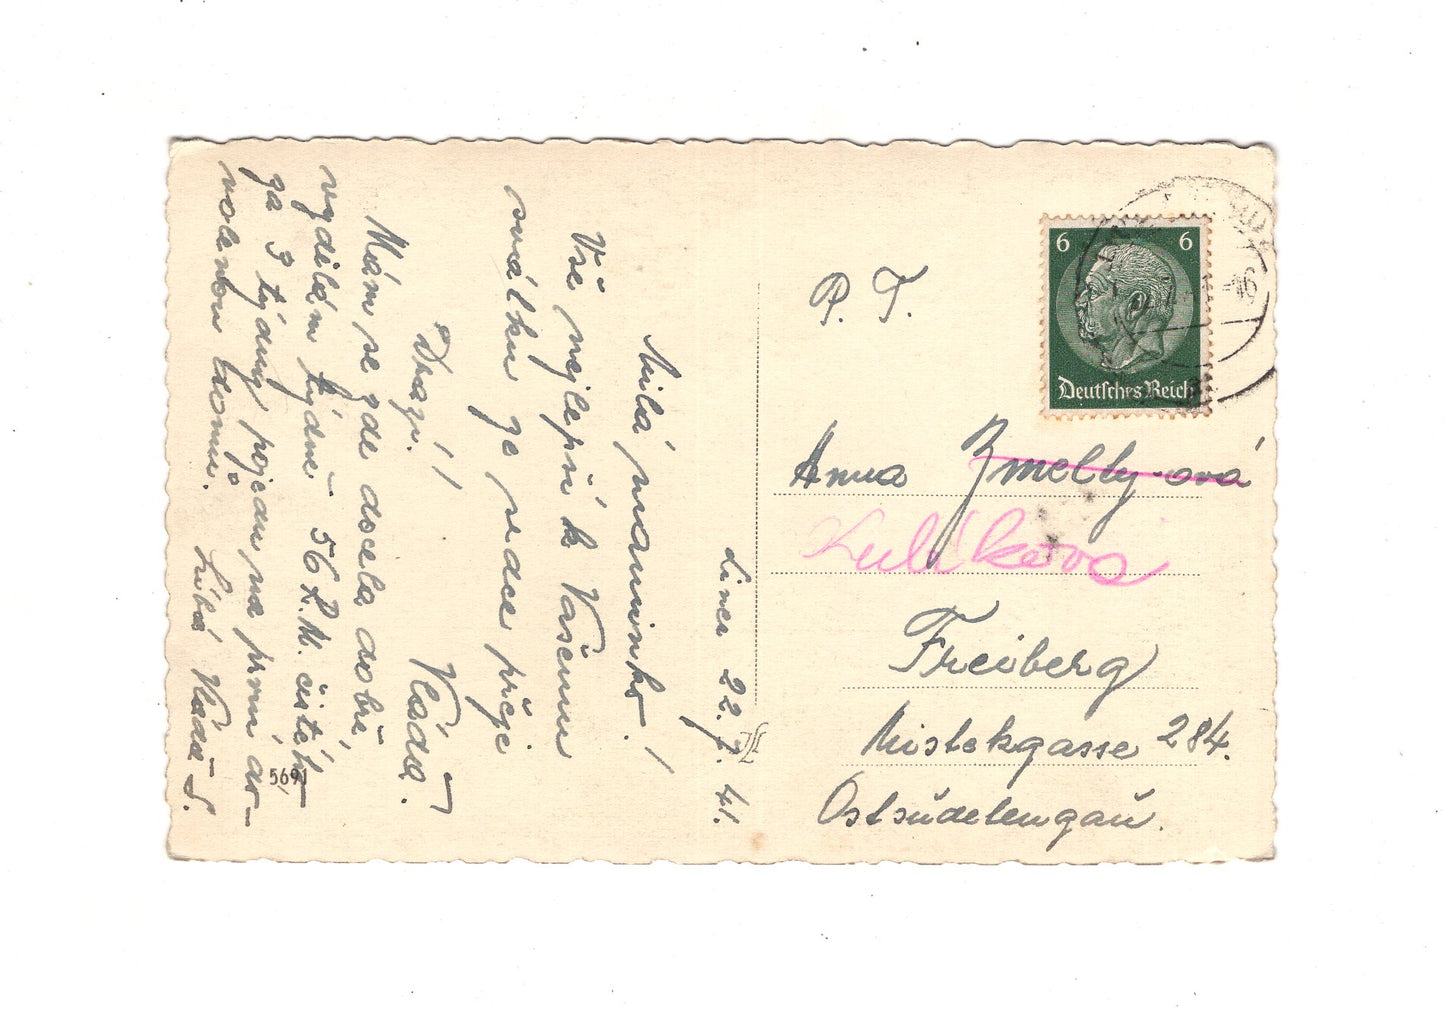 Linec 22. 7. 41.
Milá maminko!
Vše nejlepší k Vašemu
svátku ze srdce přeje
Drazí!
Vláďa.
Mám se zde docela dobře,
vydělám týdně 56 R.M. čistých
za 3 týdny pojedu na první do-
volenou domů.
Líbá Vláďa S.
5691
P. T.
Anna Zmelty-ová
Freiberg
Mistekgasse 284.
Ostsudetengau.
6 6
Deutsches Reich